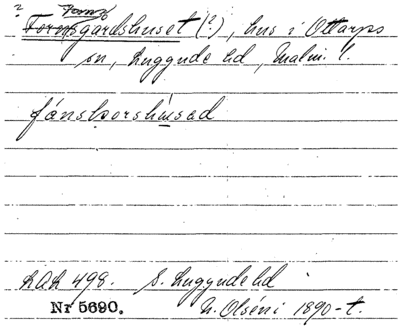 ? Torns
Tornsgårdshuset (?), hus i Ottarps
sn, Luggude hd, Malm. l.
tånsborshùsad
RAÄ 498. S. Luggude hd
Nr 5690. N. Olséni 1890-t.